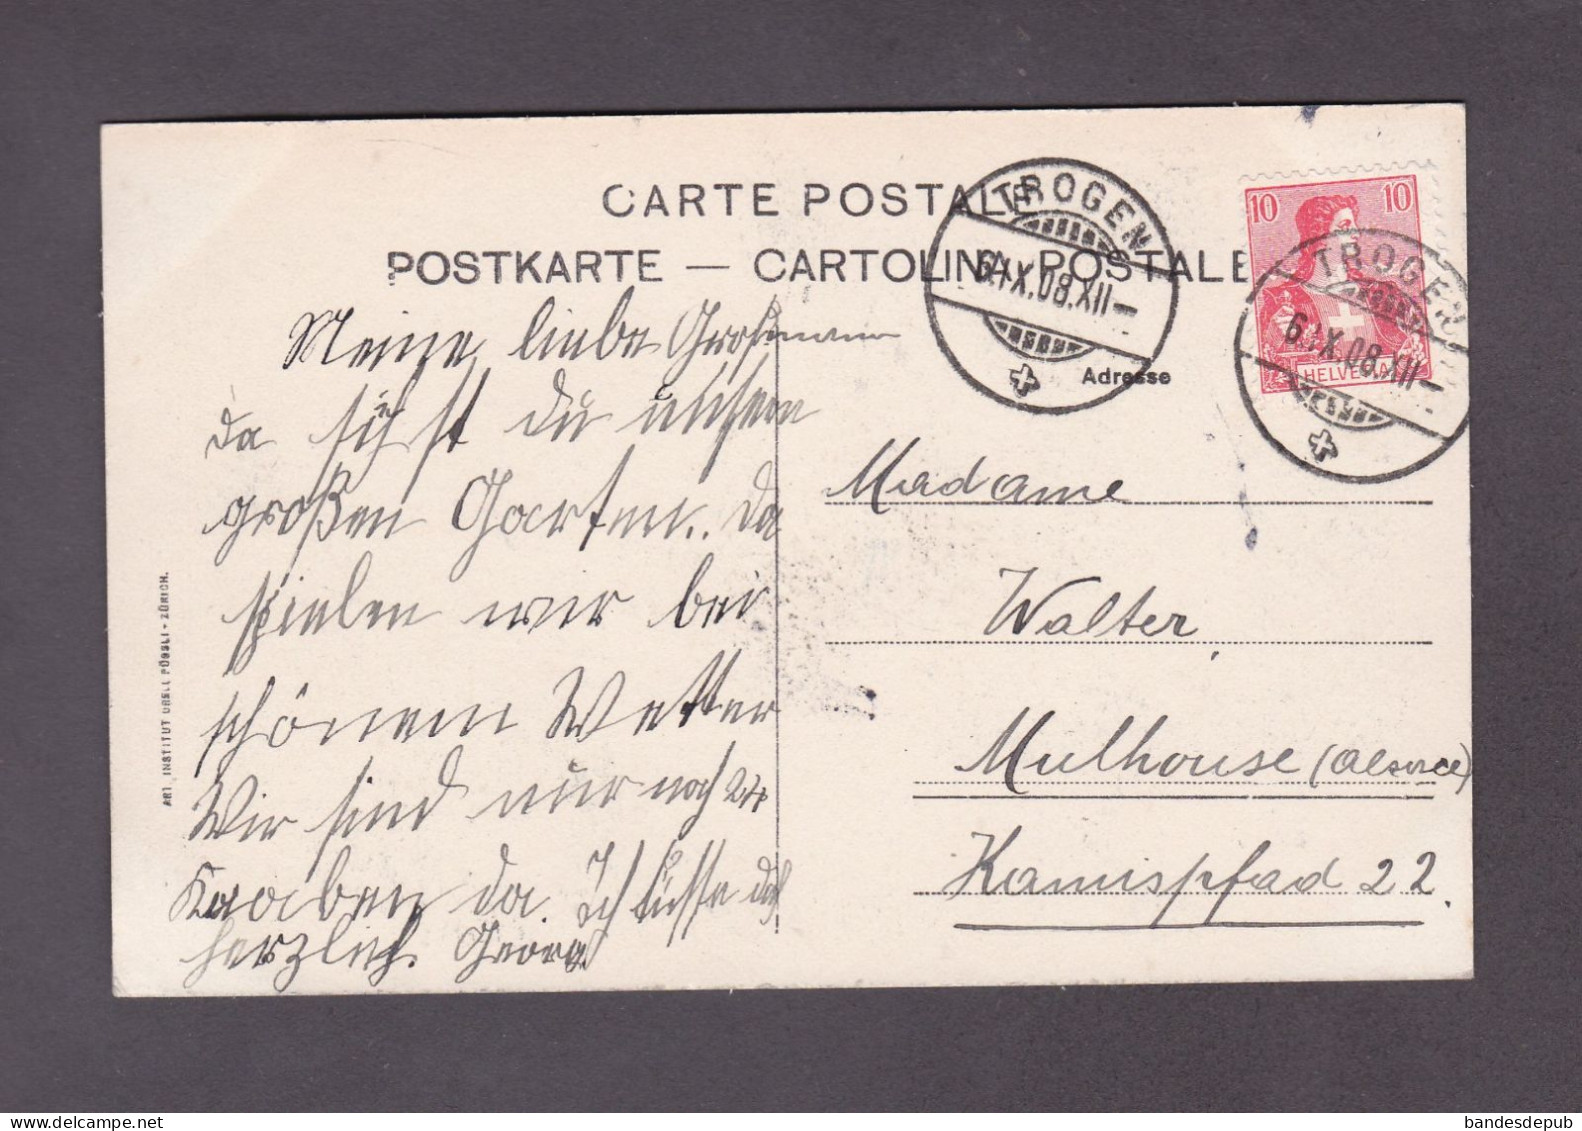 CARTE POSTALE
POSTKARTE — CARTOLINA POSTALE
TROGEN
6.IX.08.XII–
10 10
TROGEN
6.IX.08.XII–
HELVETIA
Adresse
Meine liebe Großmama
da siehst du unsern
großen Garten. Da
spielen wir bei
schönem Wetter
Wir sind nur noch 24
Knaben da. Ich küsse dich
herzlich. Georg
Madame
Walter
Mulhouse (Alsace)
Kamispfad 22.
ART. INSTITUT ORELL FÜSSLI - ZÜRICH.
bandesdepub